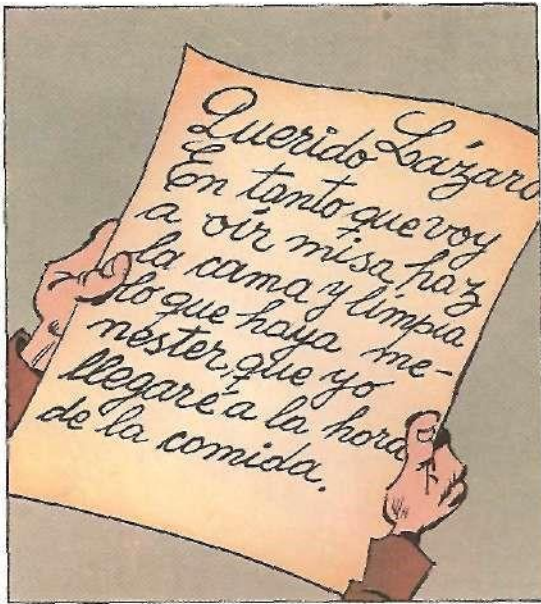 Querido Lázaro
En tanto que voy
a oír misa haz
la cama y limpia
lo que haya me-
nester, que yo
llegaré a la hora
de la comida.